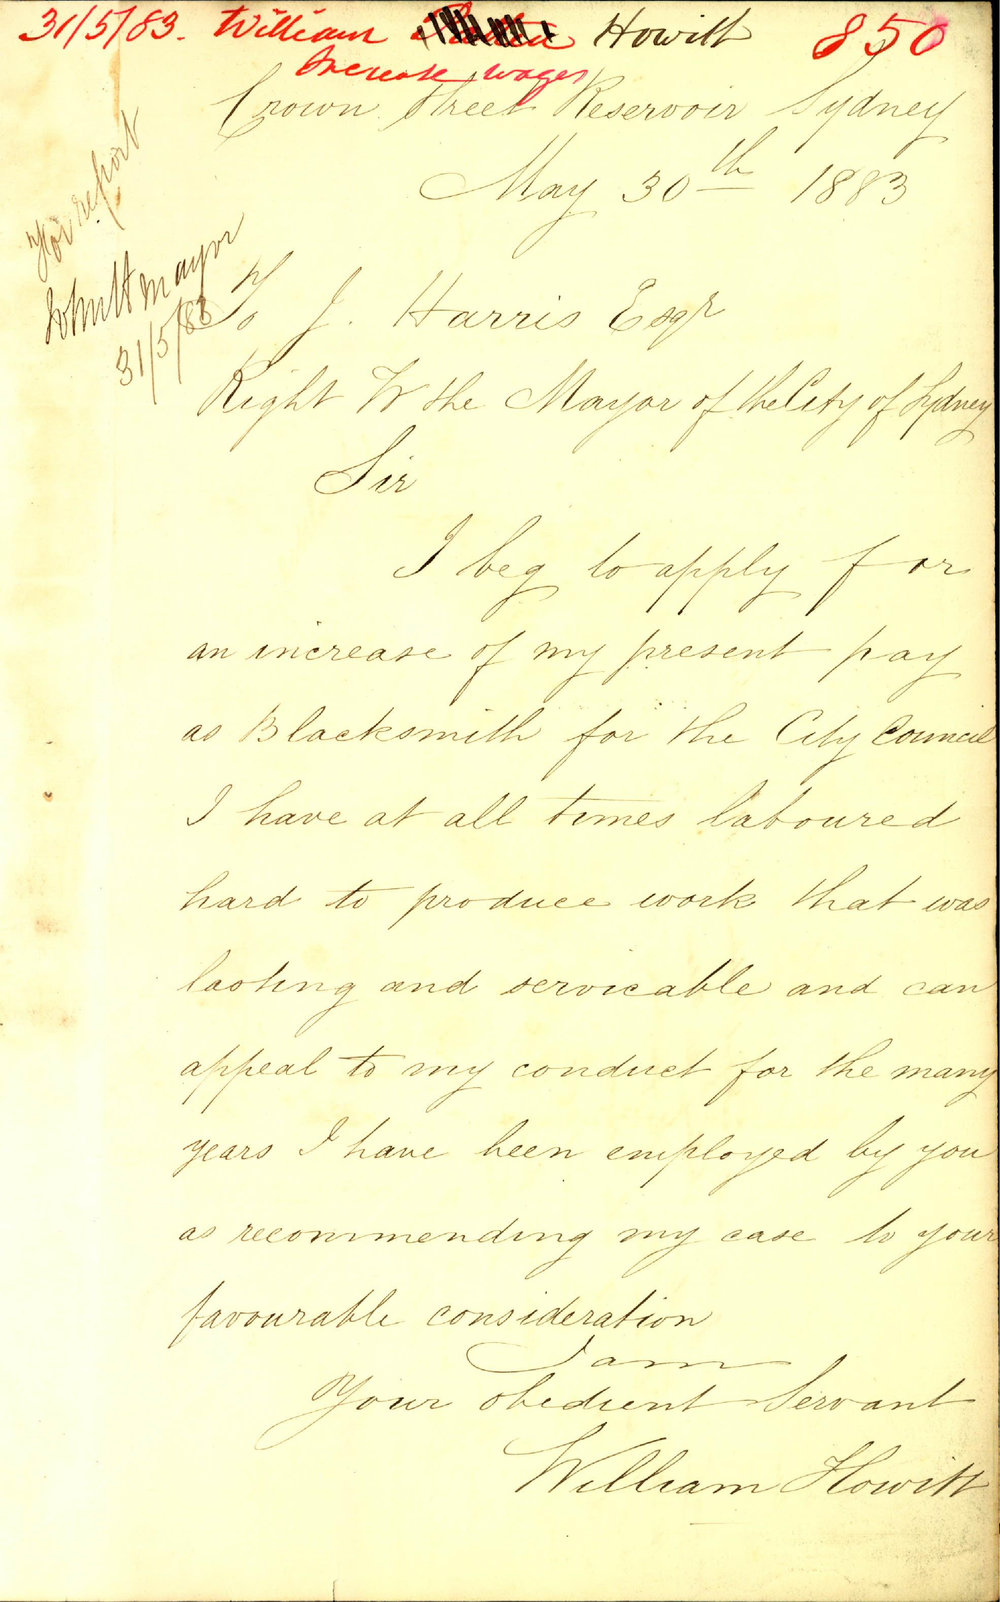 31/5/83. William Howitt 850
Increase wages
Crown Street Reservoir Sydney
May 30th 1883
For report
John H Mayor
31/5/83
To J. Harris Esqr
Right W the Mayor of the City of Sydney
Sir
I beg to apply for
an increase of my present pay
as Blacksmith for the City Council
I have at all times laboured
hard to produce work that was
lasting and servicable and can
appeal to my conduct for the many
years I have been employed by you
as recommending my case to your
favourable consideration
I am
Your obedient Servant
William Howitt